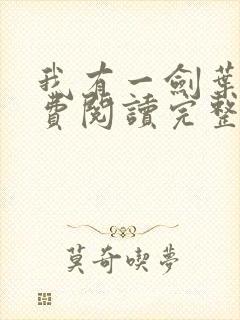 我有一劍葉
費閱讀完整
莫奇喫夢